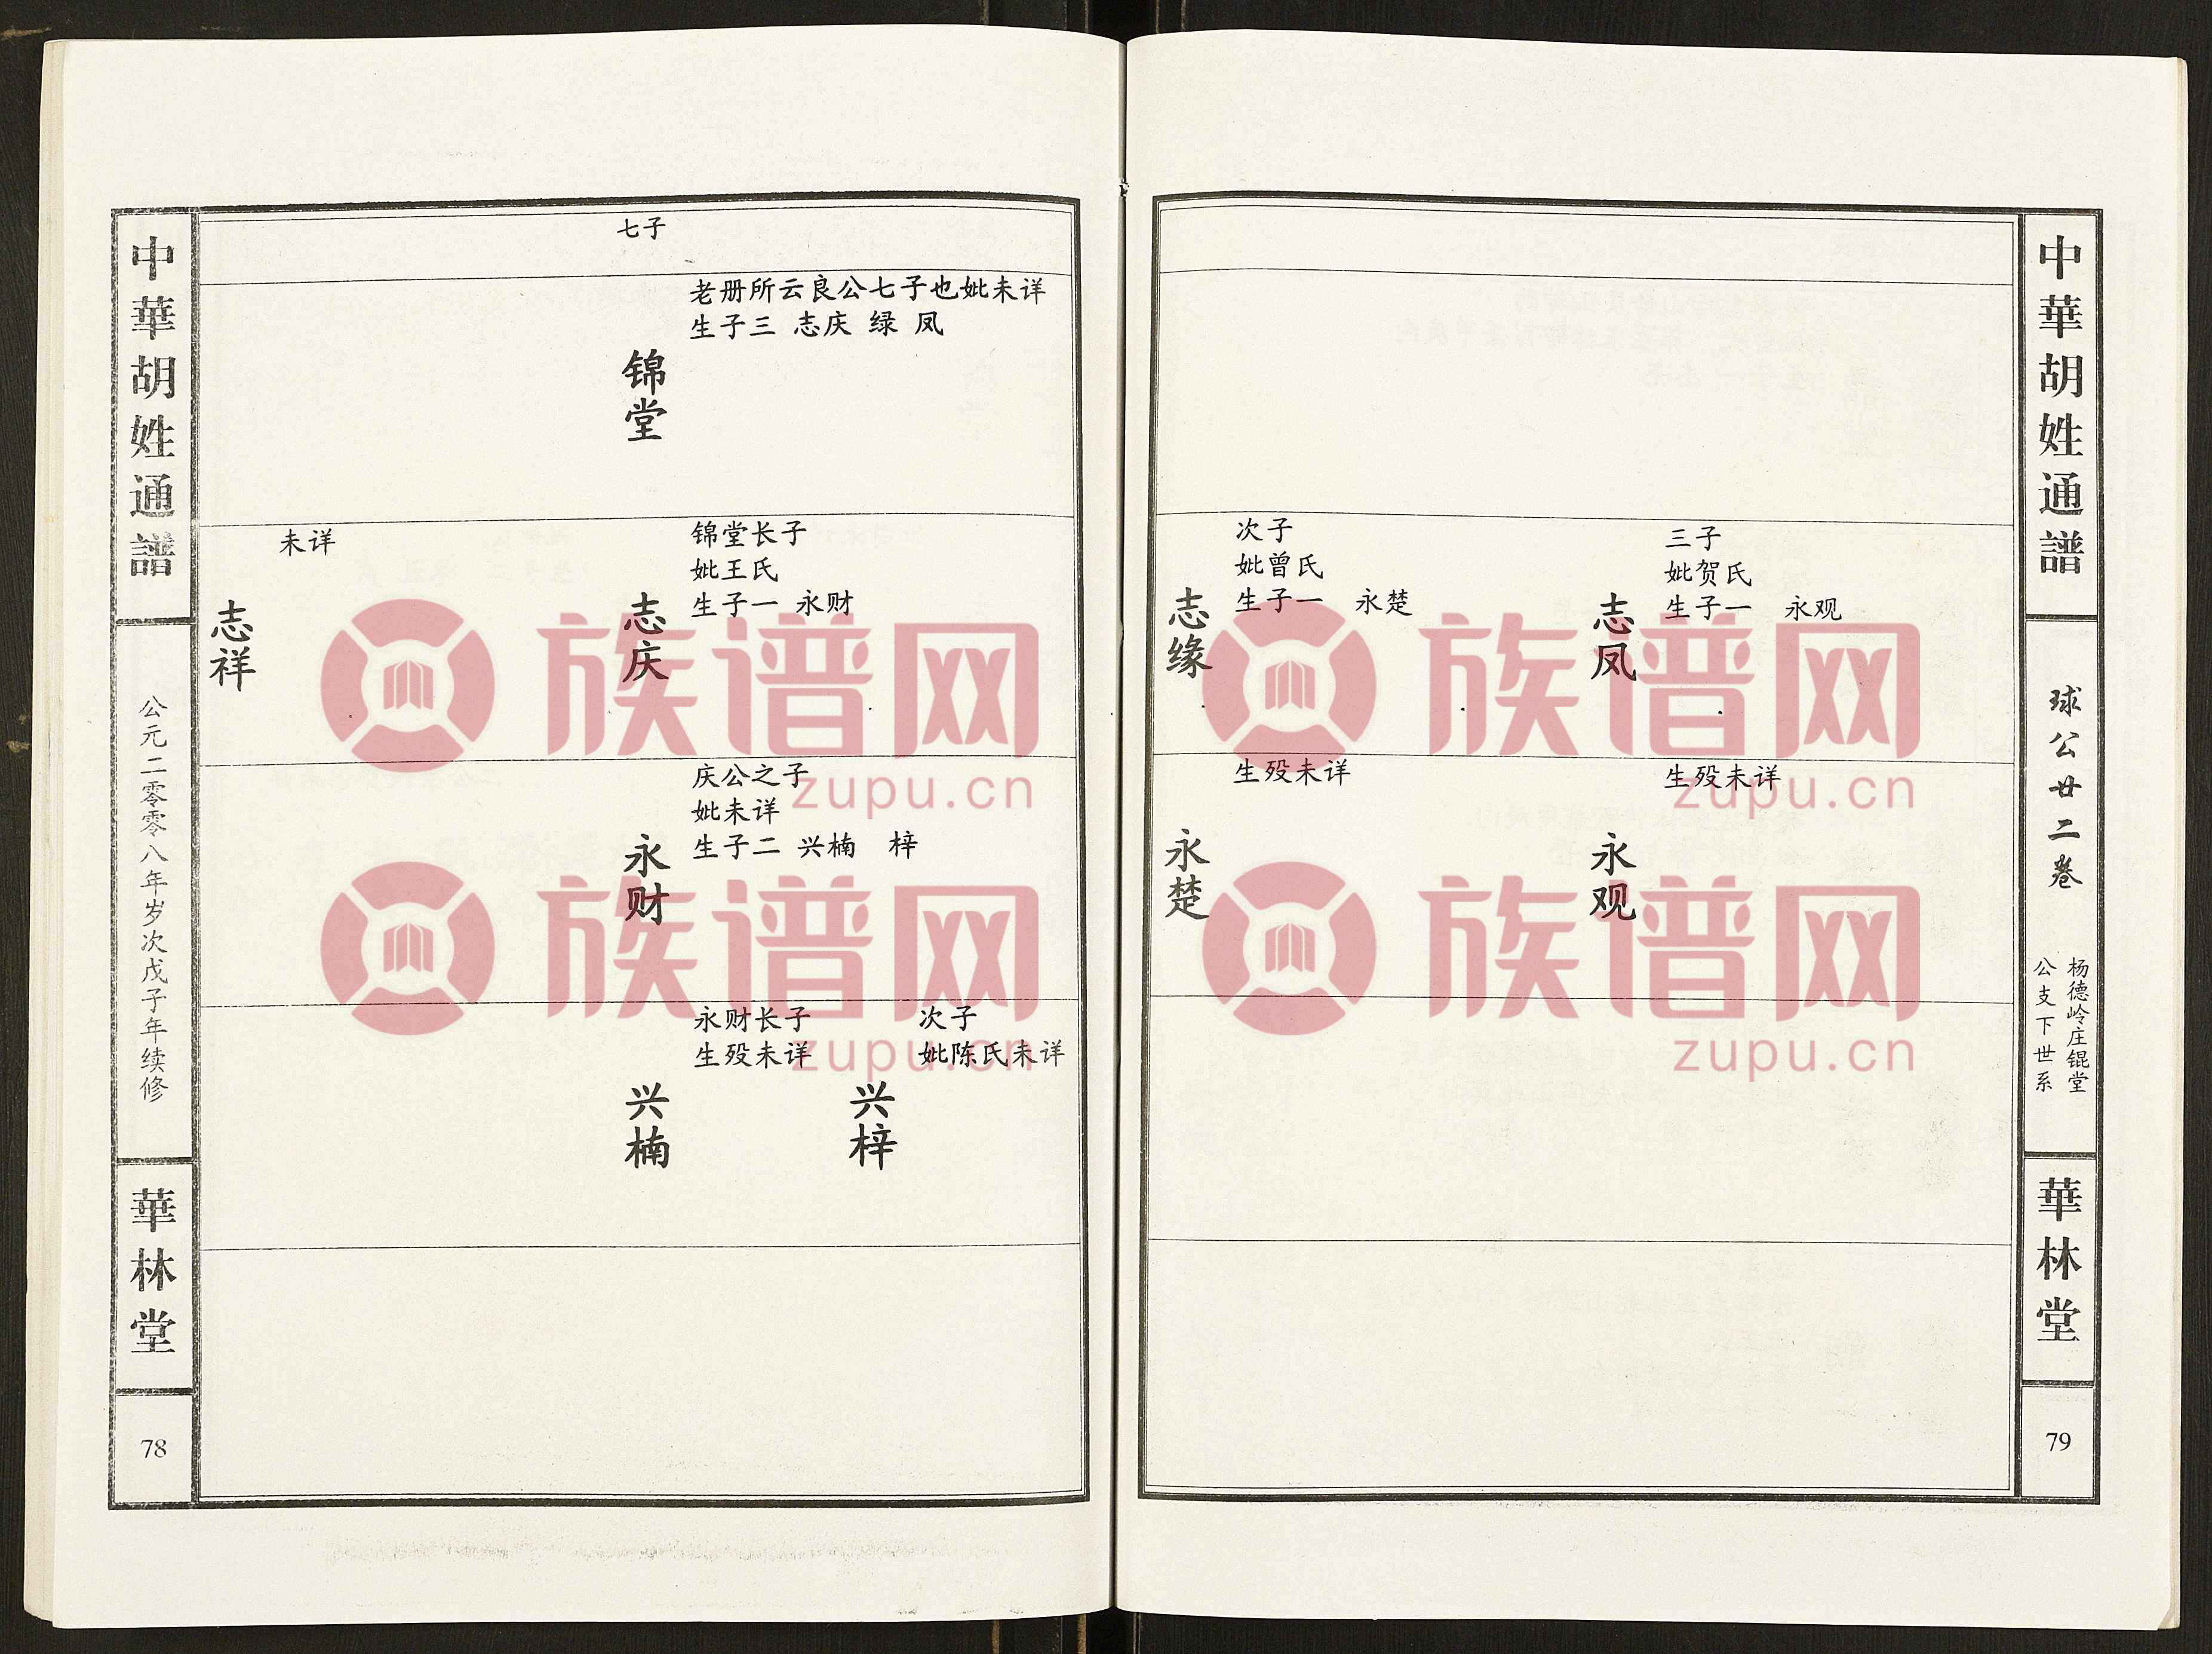 中華胡姓通譜
公元二零零八年岁次戊子年续修
華林堂
78
七子
老册所云良公七子也妣未详
生子三 志庆 绿 凤
锦堂
未详
志祥
锦堂长子
妣王氏
生子一 永财
志庆
庆公之子
妣未详
生子二 兴楠 梓
永财
永财长子
生殁未详
兴楠
次子
妣陈氏未详
兴梓
次子
妣曾氏
生子一 永楚
志缘
三子
妣贺氏
生子一 永观
志凤
生殁未详
永楚
生殁未详
永观
中華胡姓通譜
球公廿二卷
杨德岭庄锟堂
公支下世系
華林堂
79
族谱网
zupu.cn
族谱网
zupu.cn
族谱网
zupu.cn
族谱网
zupu.cn